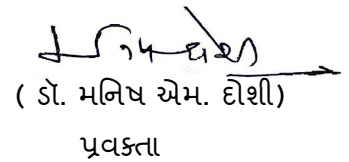 ( ડૉ. મનિષ એમ. દોશી)
પ્રવક્તા